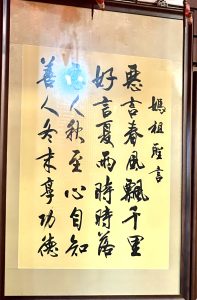 媽祖聖言
惡言春風飄千里
好言夏雨時時落
惡人秋至心自知
善人冬末享功德